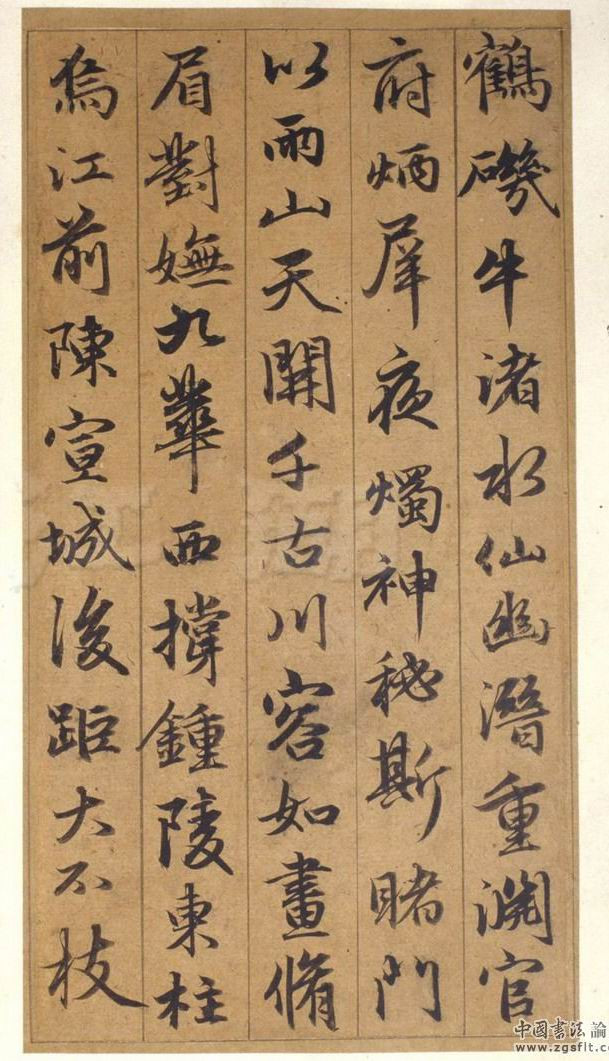 鶴磯牛渚水仙幽潛重淵官
府炳犀夜燭神秘斯睹門
以兩山天開千古川容如畫脩
眉對嫵九華西撐鍾陵東柱
烏江前陳宣城後距大不枝
中國書法論
www.zgsflt.com